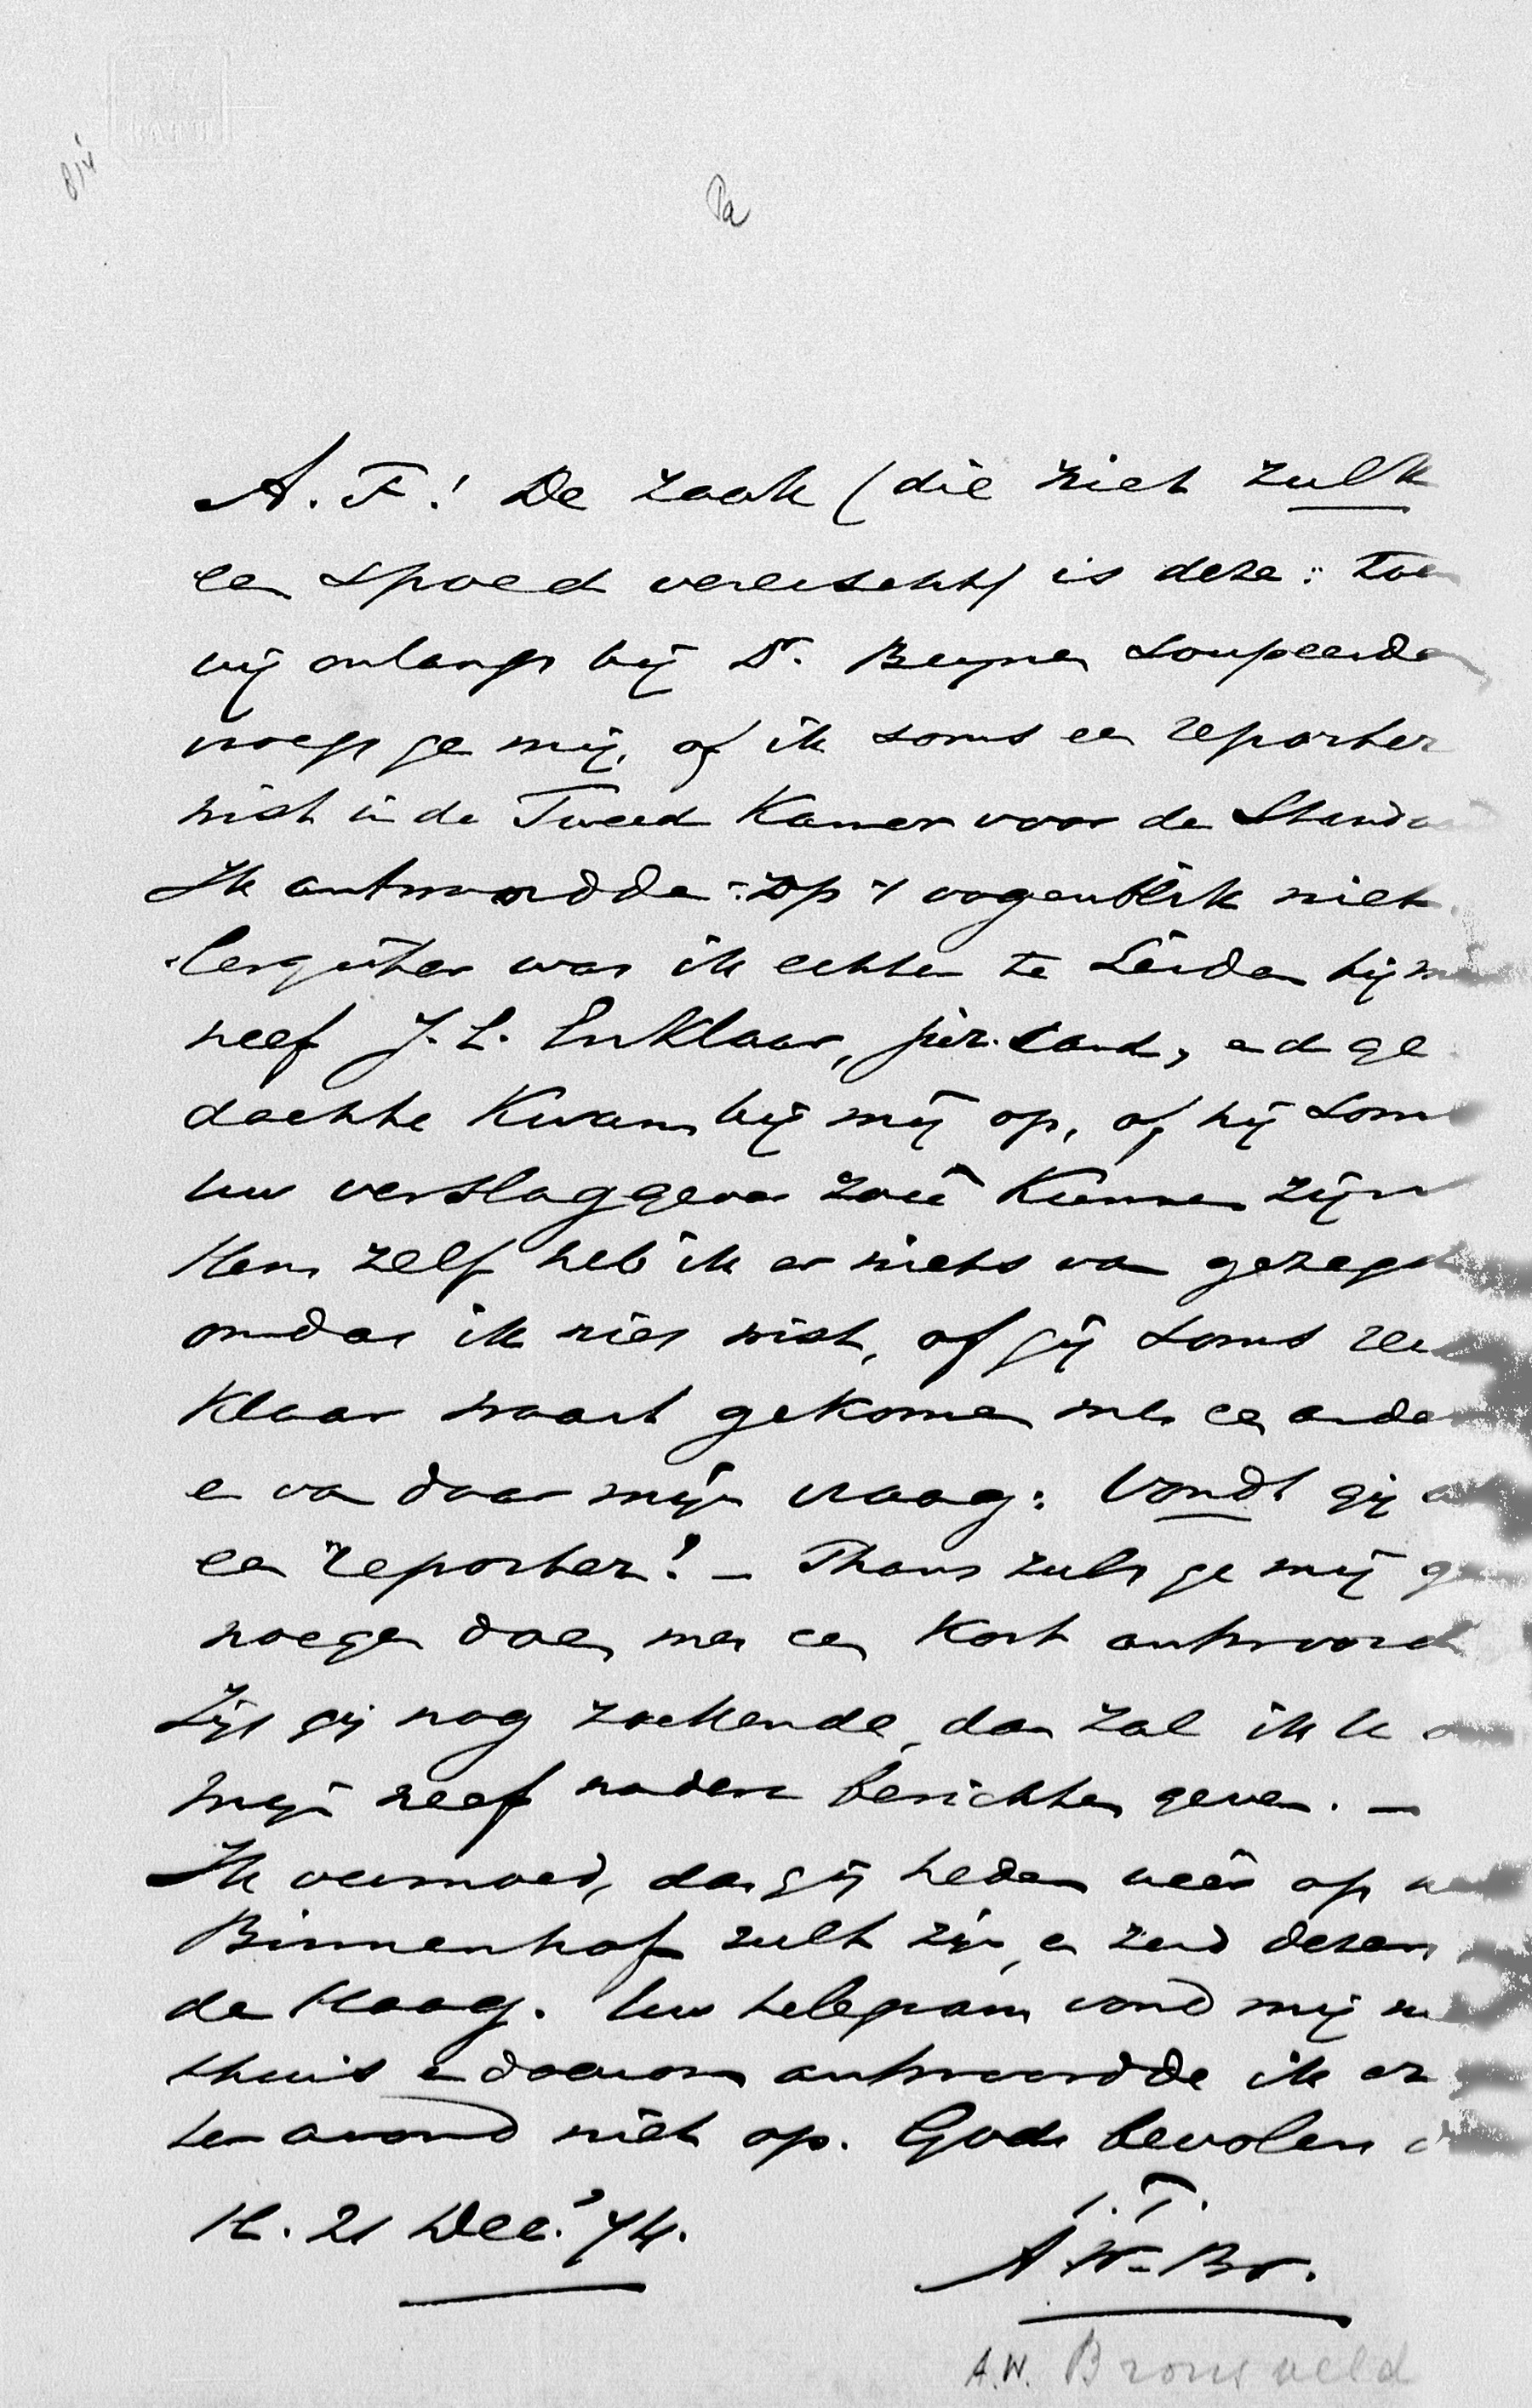 Pa
A. F.! De zaak (die niet zulk
een spoed vereischt) is deze: toen
wij onlangs bij Dr. Beynen soupeerden
vroegt ge mij, of ik soms een reporter
wist in de Tweede Kamer voor de Standaard
Ik antwoordde: op 't oogenblik niet.
Eergister was ik echter te Leiden bij mijn
neef J. L. Enklaar, jur. cand, en de ge
dachte kwam bij mij op, of hij soms
uw verslaggever zoû kunnen zijn
Hem zelf heb ik er niets van gezegd
omdat ik niet wist, of gij soms reeds
klaar waart gekomen met een ander
en van daar mijn vraag: Vondt gij al
een reporter? — Thans zult ge mij ge
noegen doen met een kort antwoord
Zijt gij nog zoekende, dan zal ik u
mijn neef nadere berichten geven. —
Ik vermoed, dat gij heden weêr op
Binnenhof zult zijn, en zend dezen
de Haag. Uw telegram vond mij niet
thuis en daarom antwoordde ik er
ter avond niet op. Gode bevolen
t. t.
H. 21 Dec. '74.
A. W. Br.
A.W. Bronsveld